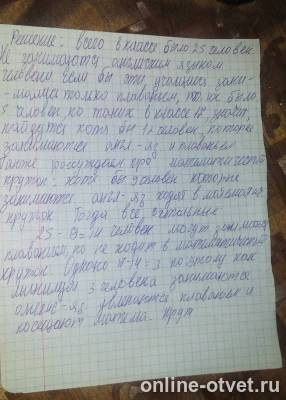 Решение. всего в классе было 25 человек.
Не занимаются английским языком
человек Если бы эти учащиеся зани-
-мались только плаваньем, то их было
5 человек, но таких в классе 17, значит,
найдутся хотя бы 12 человек, которые
занимаются англ-яз и плаваньем
рассуждаем про математический
кружок: хотя бы 9 человек которые
занимаются англ-яз ходят в математич
кружок Тогда все остальные
25-9=14 человек могут заниматься
плаваньем, но не ходят в математический
кружок. Однако 17-14=3 поэтому как
минимум 3 человека занимаются
англ-яз, плаваньем и
посещают матема. круж
online-otvet.ru